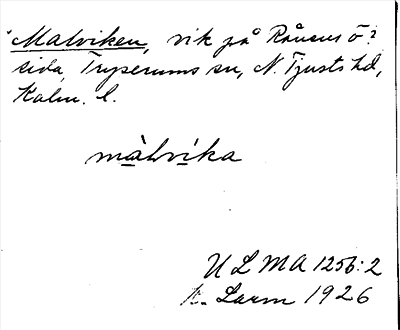 Malviken, vik på Rånsns ö.
sida, Tryserums sn, N. Tjusts hd,
Kalm. l.
màlvíka
ULMA 1256:2
K. Larm 1926